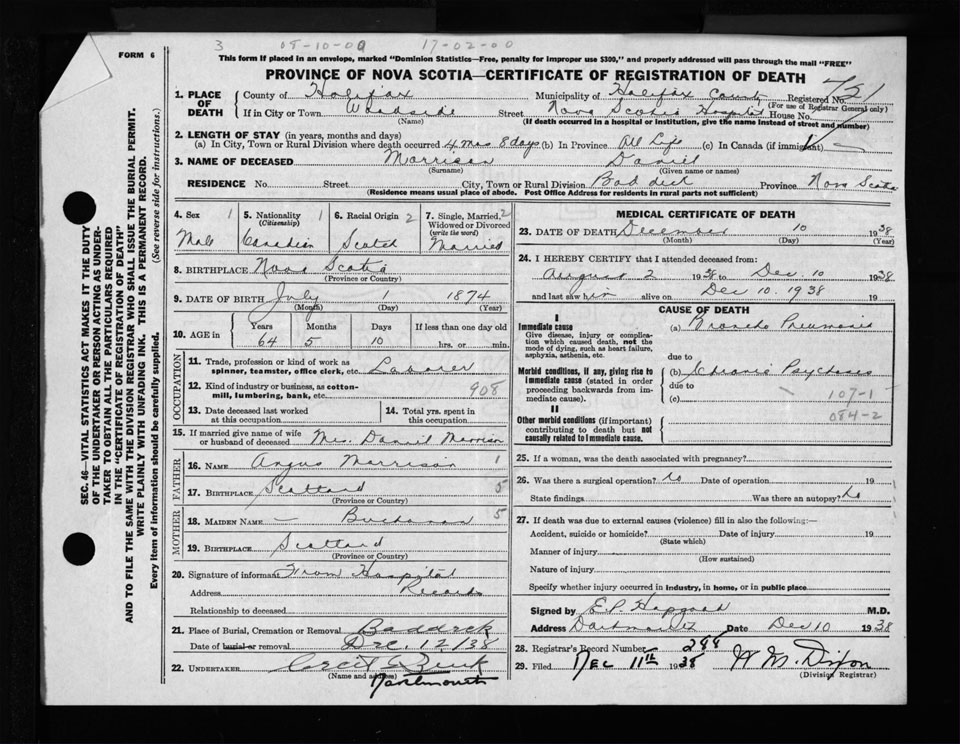 FORM 6
3 08-10-00 17-02-00
This form if placed in an envelope, marked "Dominion Statistics—Free, penalty for improper use $300," and properly addressed will pass through the mail "FREE"
PROVINCE OF NOVA SCOTIA—CERTIFICATE OF REGISTRATION OF DEATH
1. PLACE OF DEATH
County of Halifax Municipality of Halifax County Registered No. 721
(For use of Registrar General only)
If in City or Town Woodside Street Nova Scotia Hospital House No.
(Name) (If death occurred in a hospital or institution, give the name instead of street and number)
2. LENGTH OF STAY (in years, months and days)
(a) In City, Town or Rural Division where death occurred 4 mos 8 days (b) In Province All Life (c) In Canada (if immigrant)
3. NAME OF DECEASED Morrison Daniel
(Surname) (Given name or names)
RESIDENCE No. Street City, Town or Rural Division Baddeck Province Nova Scotia
(Residence means usual place of abode. Post Office Address for residents in rural parts not sufficient)
4. Sex 1 Male
5. Nationality (Citizenship) 1 Canadian
6. Racial Origin 2 Scotch
7. Single, Married, Widowed or Divorced (write the word) 2 Married
8. BIRTHPLACE Nova Scotia
(Province or Country)
9. DATE OF BIRTH July 1 1874
(Month) (Day) (Year)
10. AGE in Years Months Days If less than one day old
64 5 10 hrs. or min.
OCCUPATION
11. Trade, profession or kind of work as spinner, teamster, office clerk, etc. Laborer
12. Kind of industry or business, as cotton-mill, lumbering, bank, etc. 908
13. Date deceased last worked at this occupation
14. Total yrs. spent in this occupation
15. If married give name of wife or husband of deceased Mrs. Daniel Morrison
FATHER
16. NAME Angus Morrison 1
17. BIRTHPLACE Scotland 5
(Province or Country)
MOTHER
18. MAIDEN NAME — Buchanan 5
19. BIRTHPLACE Scotland
(Province or Country)
20. Signature of informant From Hospital
Address Records
Relationship to deceased
21. Place of Burial, Cremation or Removal Baddeck
Date of burial or removal Dec. 12/38
22. UNDERTAKER
(Name and address)
Dartmouth
MEDICAL CERTIFICATE OF DEATH
23. DATE OF DEATH December 10 1938
(Month) (Day) (Year)
24. I HEREBY CERTIFY that I attended deceased from:
August 2 1938 to Dec 10 1938
and last saw him alive on Dec 10. 1938 19
CAUSE OF DEATH
I
Immediate cause
Give disease, injury or complication which caused death, not the mode of dying, such as heart failure, asphyxia, asthenia, etc.
(a) Broncho Pneumonia
due to
Morbid conditions, if any, giving rise to immediate cause (stated in order proceeding backwards from immediate cause).
(b) Chronic Psychosis
due to
(c) 107-1
084-2
II
Other morbid conditions (if important) contributing to death but not causally related to immediate cause.
25. If a woman, was the death associated with pregnancy?
26. Was there a surgical operation? No Date of operation 19
State findings Was there an autopsy? No
27. If death was due to external causes (violence) fill in also the following:—
Accident, suicide or homicide? Date of injury 19
(State which)
Manner of injury
(How sustained)
Nature of injury
Specify whether injury occurred in industry, in home, or in public place
Signed by E.P. Hapgood M.D.
Address Dartmouth Date Dec 10 1938
28. Registrar's Record Number 288
29. Filed Dec 11th 1938 W M. Dixon
(Division Registrar)
SEC. 46—VITAL STATISTICS ACT MAKES IT THE DUTY
OF THE UNDERTAKER OR PERSON ACTING AS UNDERTAKER
TO OBTAIN ALL THE PARTICULARS REQUIRED
IN THE "CERTIFICATE OF REGISTRATION OF DEATH"
AND TO FILE THE SAME WITH THE DIVISION REGISTRAR WHO SHALL ISSUE THE BURIAL PERMIT.
WRITE PLAINLY WITH UNFADING INK. THIS IS A PERMANENT RECORD.
Every item of information should be carefully supplied. (See reverse side for instructions.)